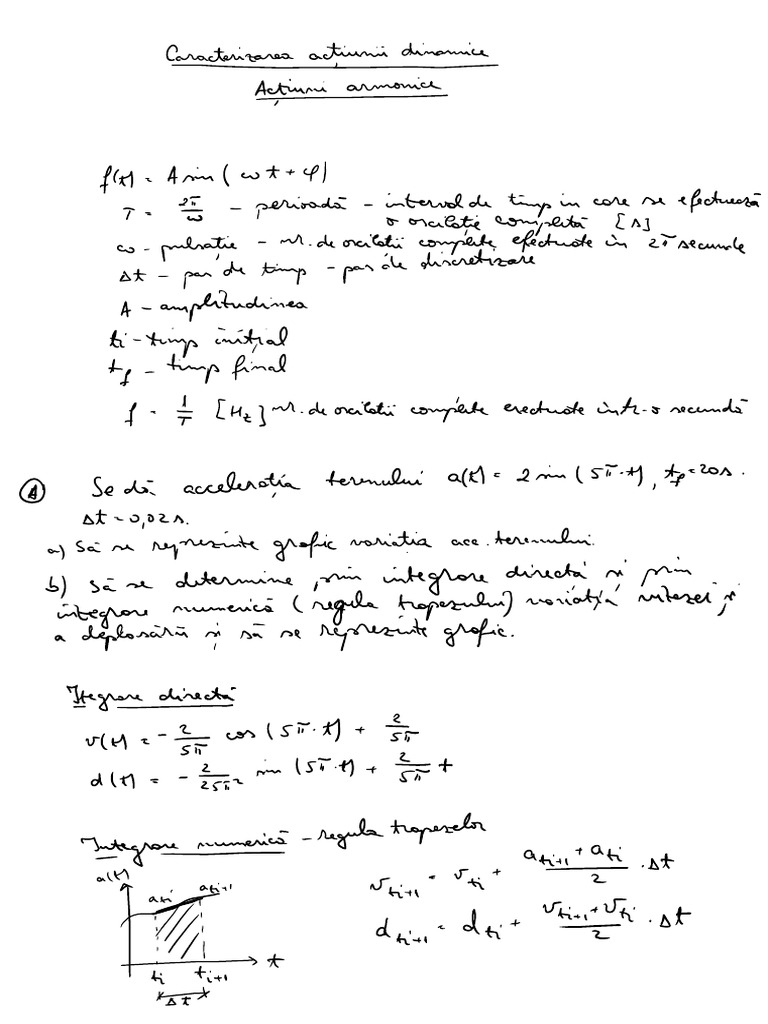 Caracterizarea acțiunii dinamice
Acțiuni armonice
f(t) = A sin ( ω t + φ)
T = 2π/ω - perioadă - interval de timp in care se efectuează
o oscilatie completă [s]
ω - pulsație - nr. de oscilatii complete efectuate în 2π secunde
Δt - pas de timp - pas de discretizare
A - amplitudinea
ti - timp inițial
tf - timp final
f = 1/T [Hz] nr. de oscilatii complete erectuate intr-o secundă
A Se dă accelerația terenului a(t) = 2 sin ( 5π·t), tf=20s.
Δt = 0,02s.
a) Să se reprezinte grafic variatia acc. terenului.
b) să se determine prin integrare directă și prin
integrare numerică (regula trapezului) variația vitezei și
a deplasării și să se reprezinte grafic.
Itegrare directă
v(t) = - 2/5π cos (5π·t) + 2/5π
d(t) = - 2/25π² sin (5π·t) + 2/5π t
Integrare numerică - regula trapezelor
a(t)
ati
ati+1
vti+1 = vti + (ati+1 + ati)/2 · Δt
dti+1 = dti + (vti+1 + vti)/2 · Δt
t
ti ti+1
Δt